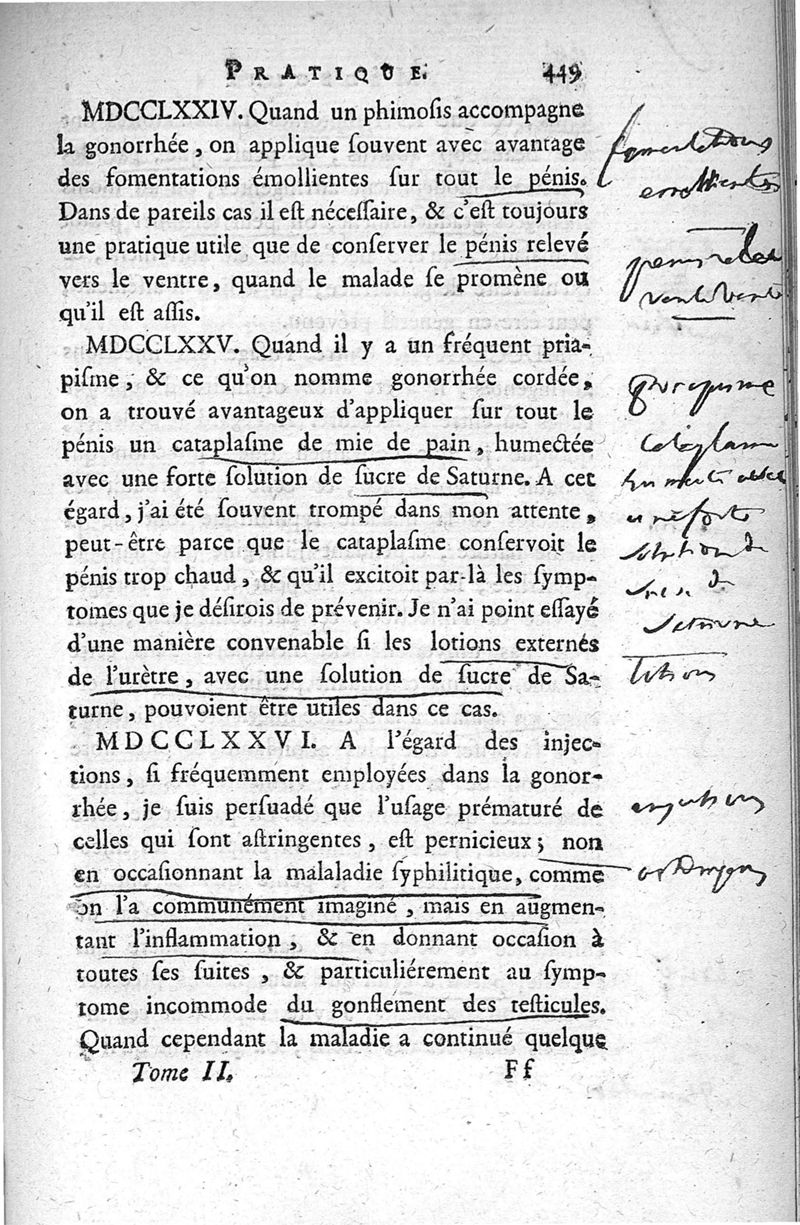 PRATIQUE. 449
MDCCLXXIV. Quand un phimoſis accompagne
la gonorrhée, on applique ſouvent avec avantage
des fomentations émollientes ſur tout le pénis.
Dans de pareils cas il eſt néceſſaire, & c'eſt toujours
une pratique utile que de conſerver le pénis relevé
vers le ventre, quand le malade ſe promène ou
qu'il eſt aſſis.
MDCCLXXV. Quand il y a un fréquent pria-
piſme, & ce qu'on nomme gonorrhée cordée,
on a trouvé avantageux d'appliquer ſur tout le
pénis un cataplaſme de mie de pain, humectée
avec une forte ſolution de ſucre de Saturne. A cet
égard, j'ai été ſouvent trompé dans mon attente,
peut-être parce que le cataplaſme conſervoit le
pénis trop chaud, & qu'il excitoit par-là les ſymp-
tomes que je déſirois de prévenir. Je n'ai point eſſayé
d'une manière convenable ſi les lotions externés
de l'urètre, avec une ſolution de ſucre de Sa-
turne, pouvoient être utiles dans ce cas.
MDCCLXXVI. A l'égard des injec-
tions, ſi fréquemment employées dans la gonor-
rhée, je ſuis perſuadé que l'uſage prématuré de
celles qui ſont aſtringentes, eſt pernicieux; non
en occaſionnant la malaladie ſyphilitique, comme
on l'a communément imaginé, mais en augmen-
tant l'inflammation, & en donnant occaſion à
toutes ſes ſuites, & particuliérement au ſymp-
tome incommode du gonflement des teſticules.
Quand cependant la maladie a continué quelque
Tome II. Ff
fomentations
emollientes
priapisme
cataplasme
une forte
solution de
sucre de
Saturne
lotions